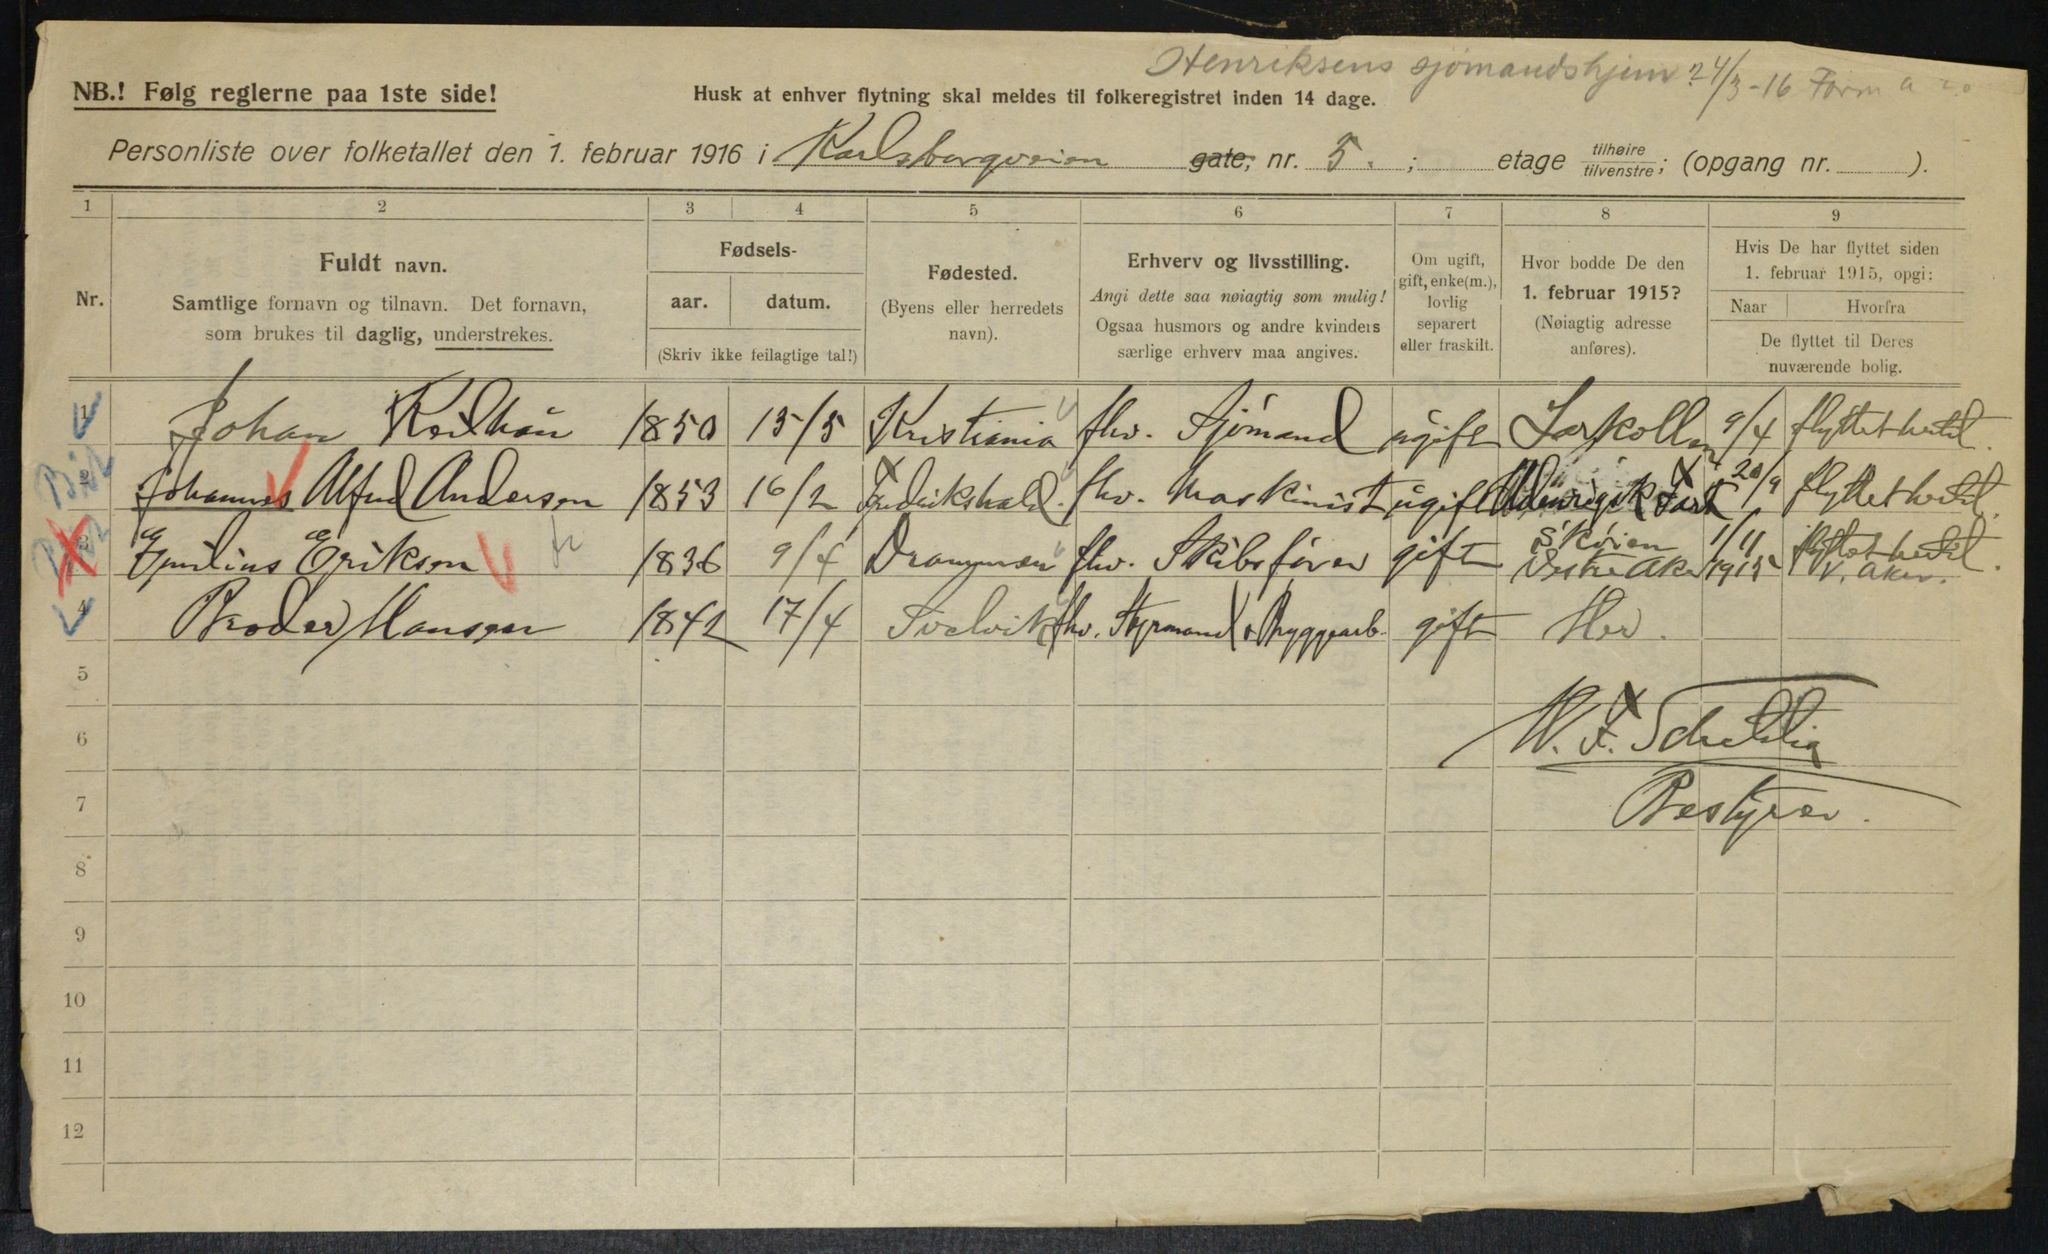 Henriksens sjømandshjem 24/3-16 Form a
NB.! Følg reglerne paa 1ste side!
Husk at enhver flytning skal meldes til folkeregistret inden 14 dage.
Personliste over folketallet den 1. februar 1916 i Karlsborgveien gate, nr. 5. ; etage tilhøire tilvenstre; (opgang nr. ).
1 2 3 4 5 6 7 8 9
Nr.
Fuldt navn.
Samtlige fornavn og tilnavn. Det fornavn,
som brukes til daglig, understrekes.
Fødsels-
aar. datum.
(Skriv ikke feilagtige tal!)
Fødested.
(Byens eller herredets
navn).
Erhverv og livsstilling.
Angi dette saa nøiagtig som mulig!
Ogsaa husmors og andre kvinders
særlige erhverv maa angives.
Om ugift,
gift, enke(m.),
lovlig
separert
eller fraskilt.
Hvor bodde De den
1. februar 1915?
(Nøiagtig adresse
anføres).
Hvis De har flyttet siden
1. februar 1915, opgi:
Naar Hvorfra
De flyttet til Deres
nuværende bolig.
1 Johan 1850 15/5 Kristiania fhv. Sjømand ugift Larkollen 9/4 flyttet hertil.
2 Johannes Alfred Anderson 1853 16/2 Fredrikshald. fhv. Maskinist ugift Udenrigsk Fart 20/9 flyttet hertil.
3 Emilius Erikson 1836 9/4 Drammen fhv. Skibsfører gift Skøien Vestre Aker 1/11 1915 flyttet hertil V. Aker.
4 Broder Hansen 1842 17/4 Svelvik fhv. Styrmand & Bryggearb. gift Her.
5
W. F. Schelling
6
7
Bestyrer.
8
9
10
11
12